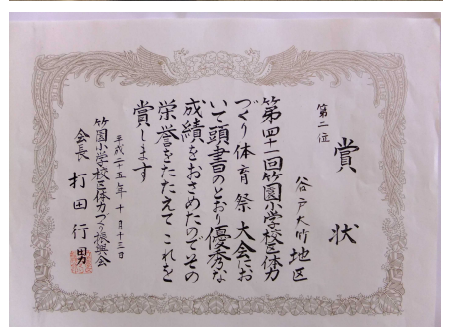 賞状
第二位
谷戸大竹地区
第四十一回竹園小学校区体力
づくり体育祭大会にお
いて頭書のとおり優秀な
成績をおさめたのでその
栄誉をたたえてこれを
賞します
平成二十五年十月十三日
竹園小学校区体力づくり振興会
会長 打田行男